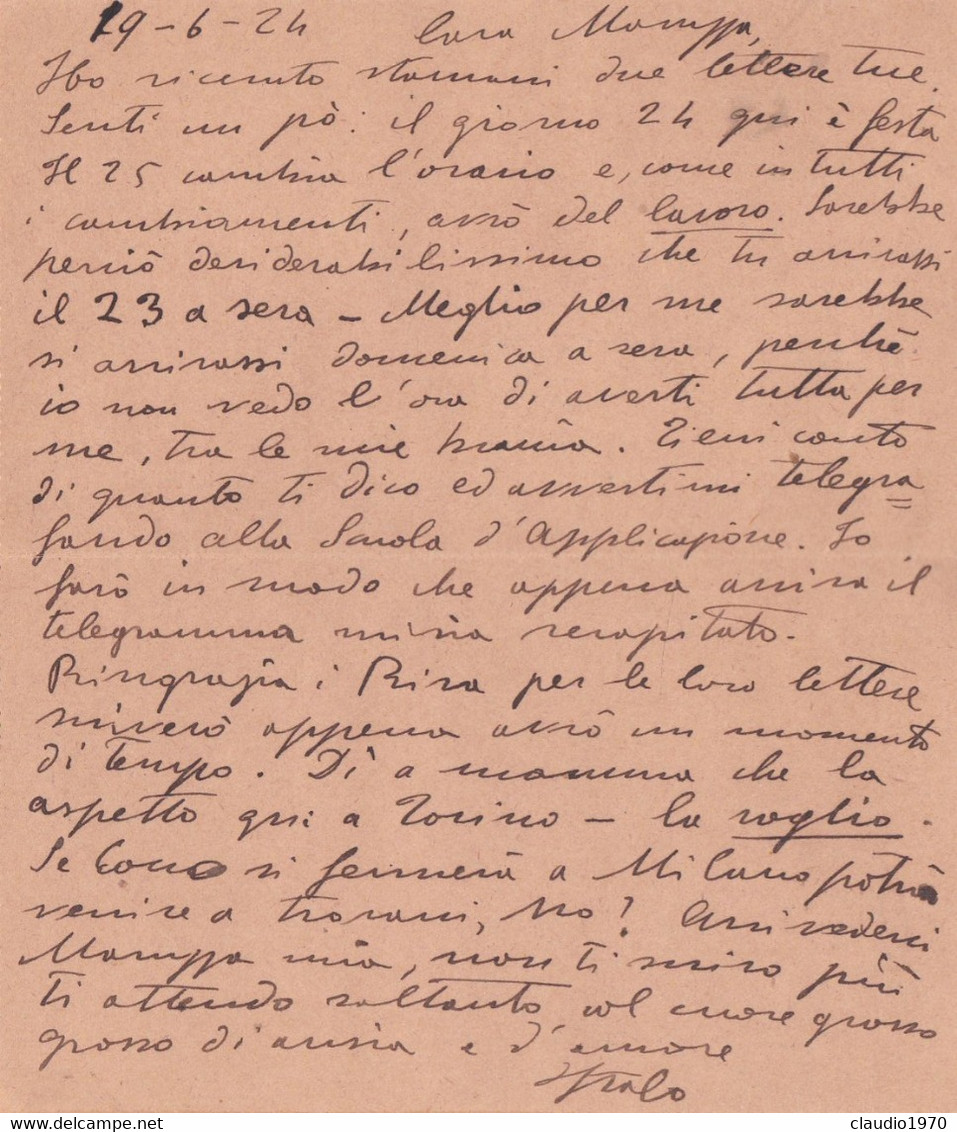 19-6-24 Cara Maruzza,
Ho ricevuto stamani due lettere tue.
Senti un pò: il giorno 24 qui è festa
Il 25 cambia l'orario e, come in tutti
i cambiamenti, avrò del lavoro. Sarebbe
perciò desiderabilissimo che tu arrivassi
il 23 a sera - Meglio per me sarebbe
si arrivassi domenica a sera, perchè
io non vedo l'ora di averti tutta per
me, tra le mie braccia. Tieni conto
di quanto ti dico ed avvertimi telegra=
fando alla Scuola d'Applicazione. Io
farò in modo che appena arriva il
telegramma mi sia recapitato.
Ringrazia i Riva per le loro lettere
scriverò appena avrò un momento
di tempo. Dì a mamma che la
aspetto qui a Torino - la voglio.
Se si fermerà a Milano potrà
venire a trovarci, no? Arrivederci
Maruzza mia, non ti scrivo più
ti attendo soltanto col cuore grosso
grosso di ansia e d'amore
Italo
claudio1970